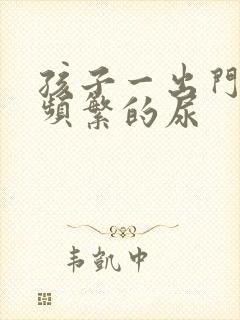 孩子一出門
頻繁的尿
韦凱中